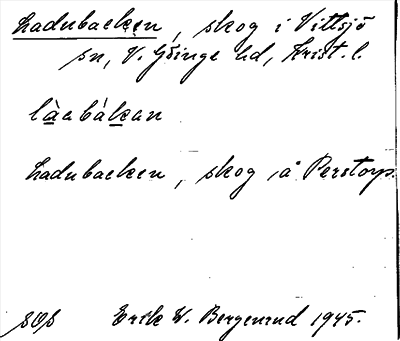 Ladubacken, skog i Vittsjö
sn, V. Göinge hd, Krist. l.
làebákan
Ladubacken, skog å Perstorp
SOS Erik W. Bergenrud 1945.